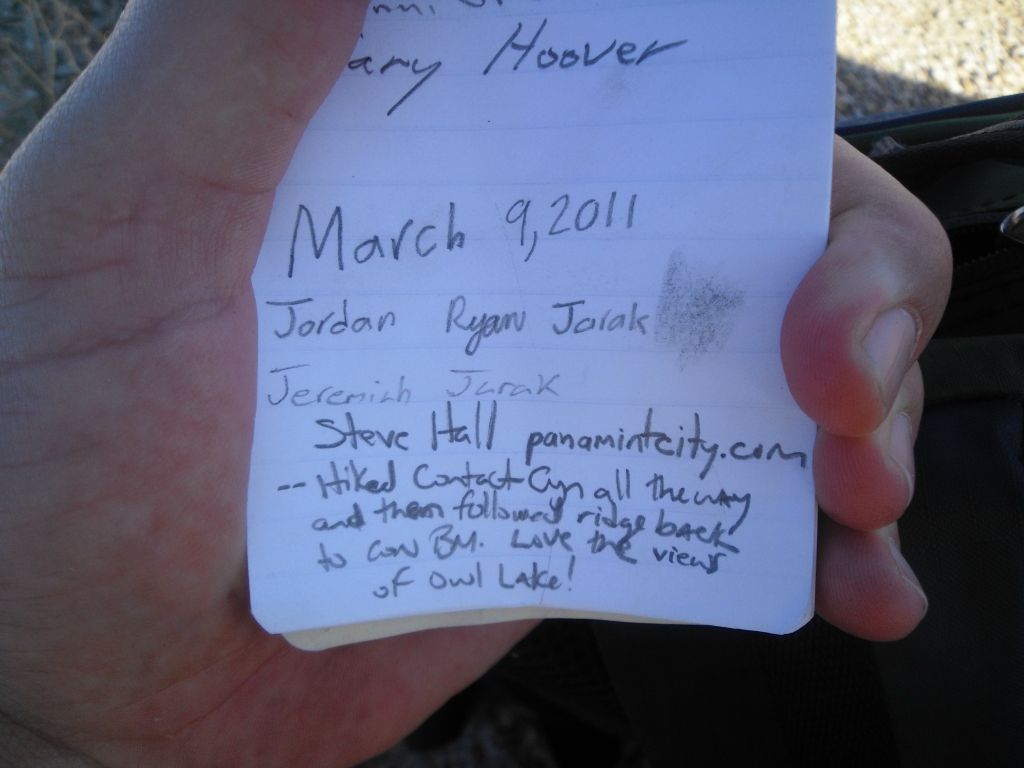 Hoover
March 9, 2011
Jordan Ryan Jarak
Jeremiah Jarak
Steve Hall panamintcity.com
-- Hiked Contact Cyn all the way
and then followed ridge back
to Owl BM. Love the views
of Owl Lake!